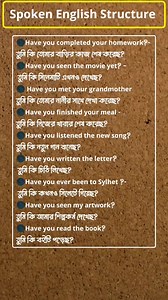 Spoken English Structure
Have you completed your homework?-
তুমি কি তোমার বাড়ির কাজ শেষ করেছ?
Have you seen the movie yet? -
তুমি কি সিনেমাটি এখনও দেখেছ?
Have you met your grandmother
তুমি কি তোমার নানীর সাথে দেখা করেছ?
Have you finished your meal -
তুমি কি নিজের খাবার শেষ করেছ?
Have you listened the new song?
তুমি কি নতুন গান শুনেছ?
Have you written the letter?
তুমি কি চিঠি লিখেছ?
Have you ever been to Sylhet ?-
তুমি কি কখনও সিলেটে গিয়েছ?
Have you seen my artwork?
তুমি কি আমার শিল্পকর্ম দেখেছ?
Have you read the book?
তুমি কি বইটি পড়েছ?